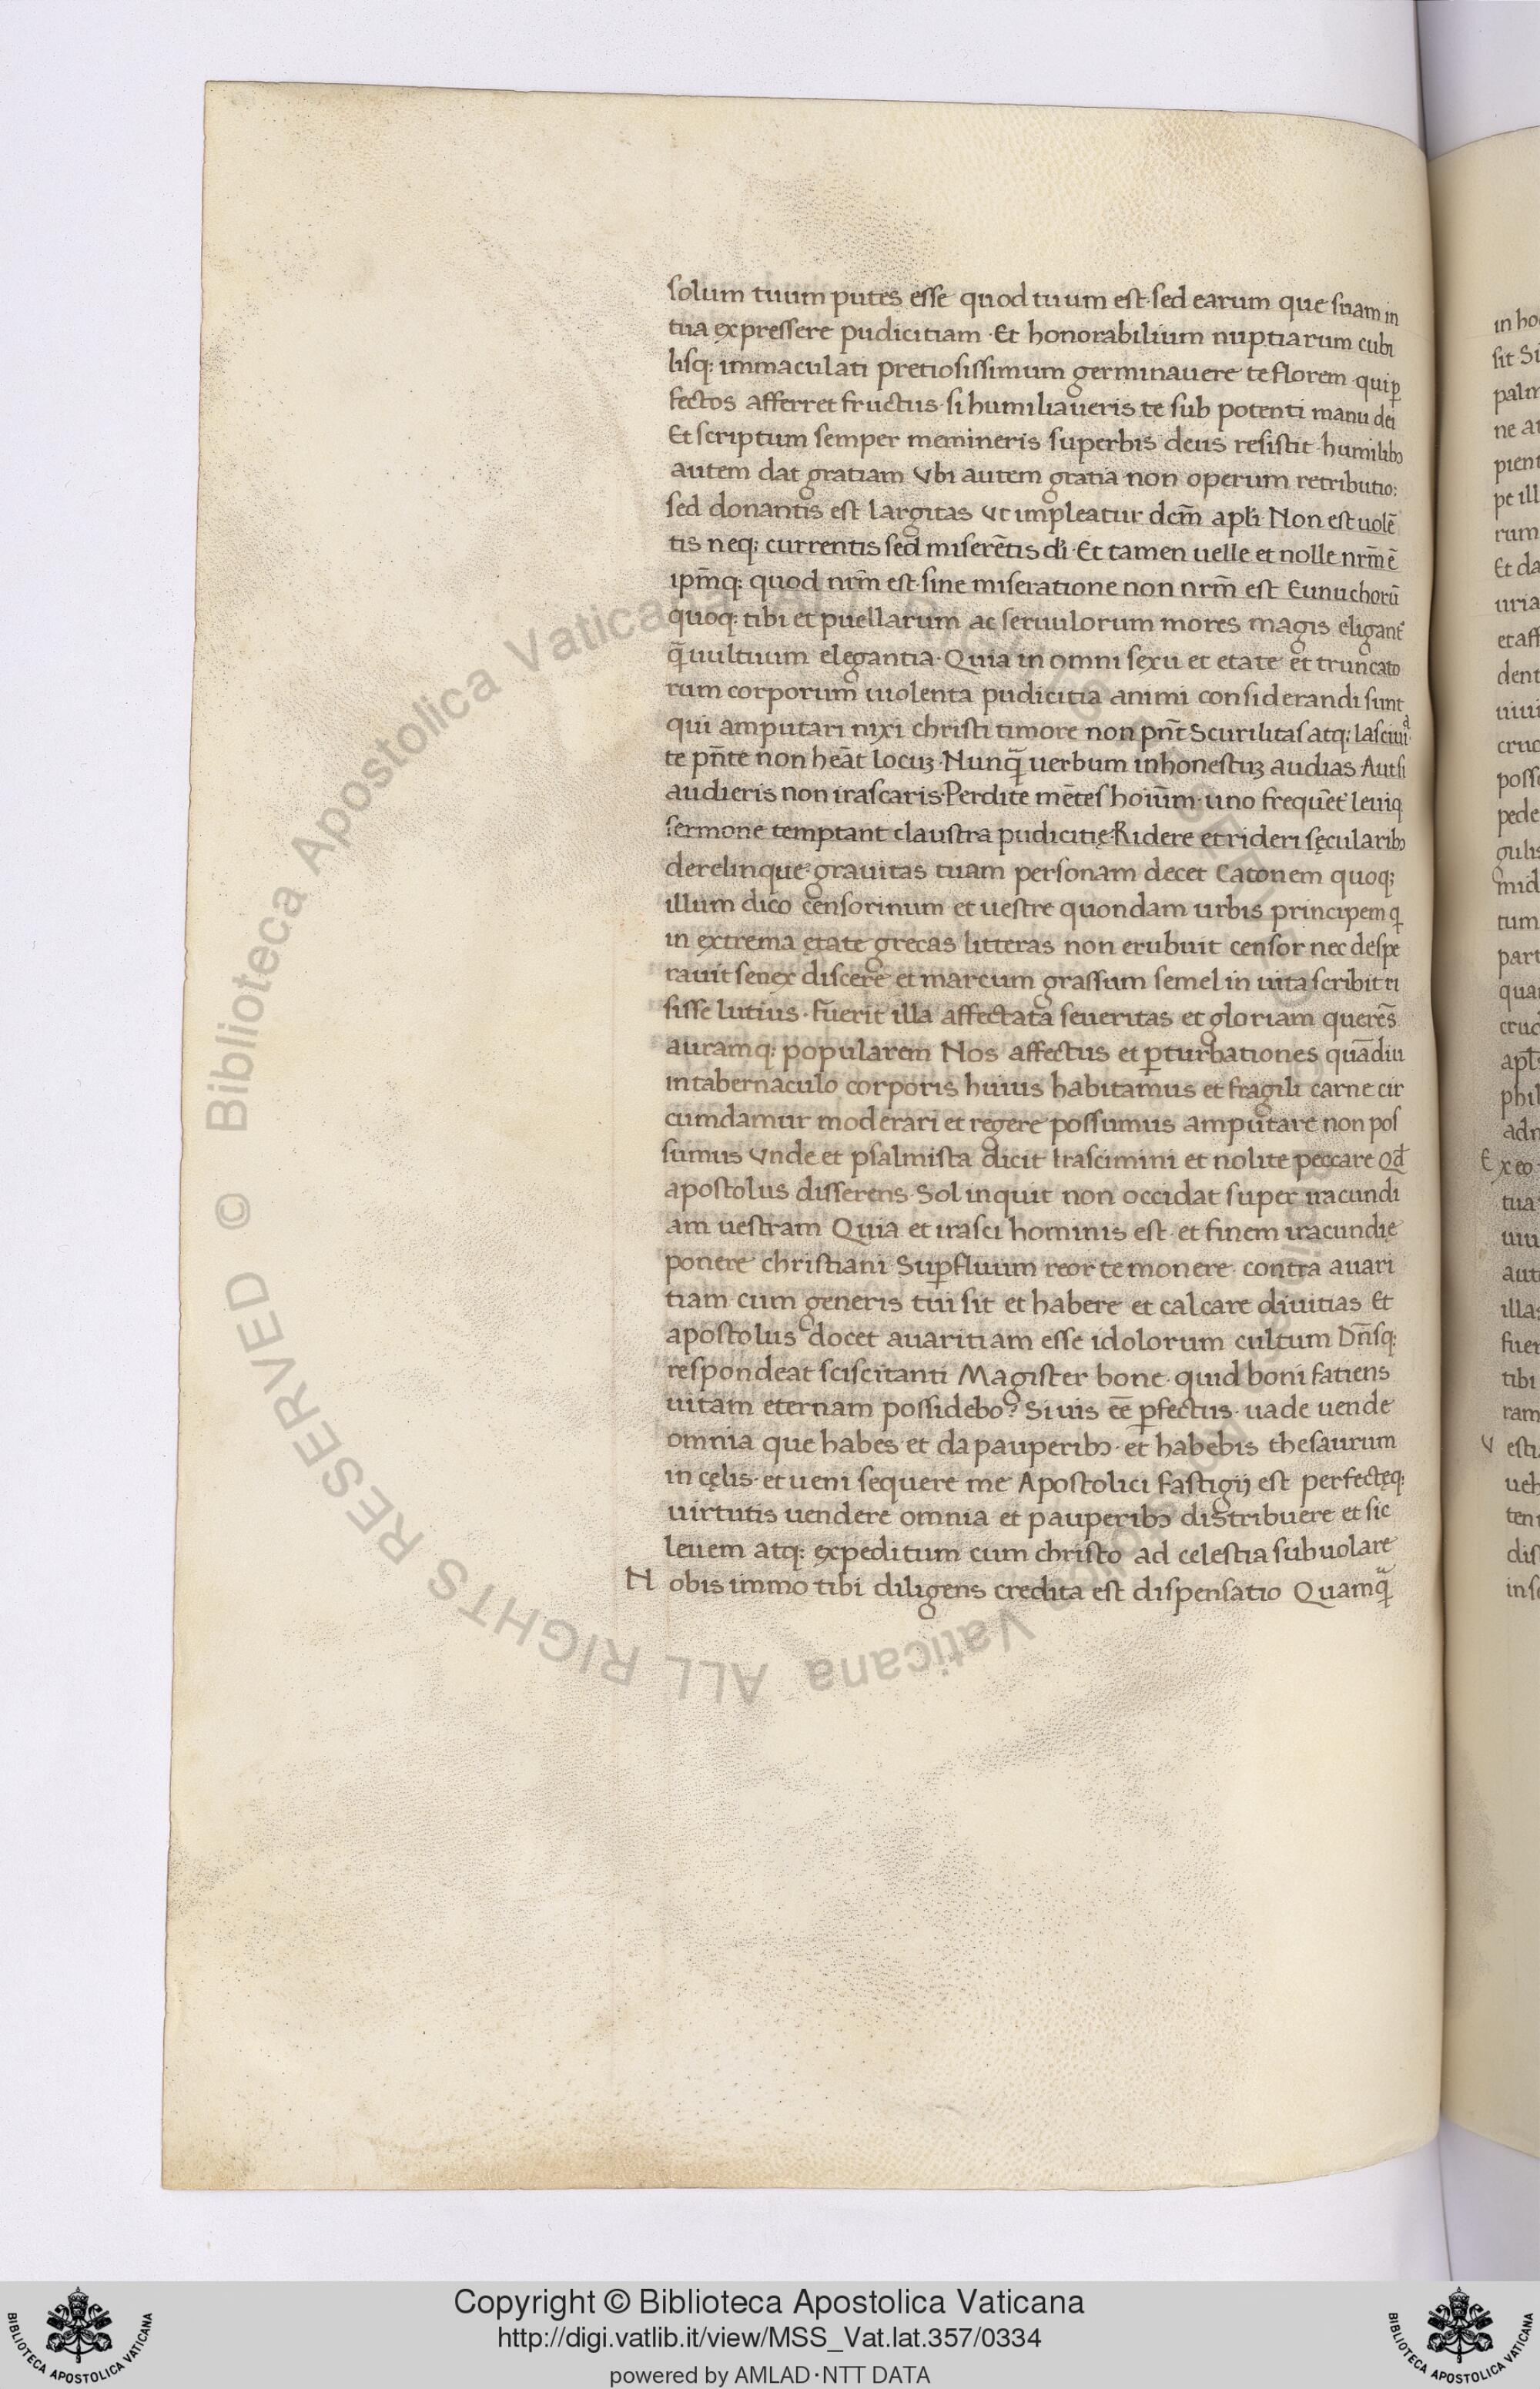 solum tuum putes esse quod tuum est· sed earum que suam in
tua expressere pudicitiam · Et honorabilium nuptiarum cubi
lisq; immaculati pretiosissimum germinauere te florem · qui ꝑ
fectos afferret fructus· si humiliaueris te sub potenti manu dei
Et scriptum semper memineris superbis deus resistit· humilibꝫ
autem dat gratiam Vbi autem gratia non operum retributio:
sed donantis est largitas Vt impleatur dcm̄ apl̄i· Non est uolē
tis neq; currentis sed miserētis dī· Et tamen uelle et nolle nrm̄ ē
ipm̄q; quod nrm̄ est· sine miseratione non nrm̄ est Eunuchorū
quoq; tibi et puellarum ac seruulorum mores magis eligant᷑
q̄ uultuum elegantia· Quia in omni sexu et etate et truncato
rum corporum uiolenta pudicitia animi considerandi sunt
qui amputari nixi christi timore non pn̄t Scurilitas atq; lasciuia
te pn̄te non heāt locuꝫ· Nunq̄ uerbum inhonestuꝫ audias· Aut si
audieris non irascaris· Perdite mētes hoiūm· uno frequēt᷑ leuiq
sermone temptant claustra pudicitię· Ridere et rideri sęcularibꝫ
derelinque· grauitas tuam personam decet Catonem quoq;
illum dico censorinum· et uestre quondam urbis principem q
in extrema ętate grecas litteras non erubuit censor nec despe
rauit senex discere· et marcum grassum semel in uita scribit ri
sisse lutius· Fuerit illa affectata seueritas et gloriam querēs
auramq; popularem Nos affectus et ꝑturbationes quādiu
in tabernaculo corporis huius habitamus et fragili carne cir
cumdamur moderari et regere possumus amputare non pos
sumus Vnde et psalmista dicit Irascimini et nolite peccare Qd̄
apostolus disserens· Sol inquit non occidat super iracundi
am uestram Quia et irasci hominis est· et finem iracundię
ponere christiani· Suꝑfluum reor te monere· contra auari
tiam· cum generis tui sit et habere et calcare diuitias Et
apostolus docet auaritiam esse idolorum cultum Dn̄sq;
respondeat sciscitanti Magister bone· quid boni fatiens
uitam eternam possidebo? Si uis eē ꝑfectus· uade uende
omnia que habes· et da pauperibꝫ· et habebis thesaurum
in cęlis· et ueni sequere me Apostolici fastigij est perfectęq;
uirtutis uendere omnia et pauperibꝫ distribuere et sic
leuem atq; expeditum cum christo ad celestia subuolare
N obis immo tibi diligens credita est dispensatio Quamq̄
© Biblioteca Apostolica Vaticana ALL RIGHTS RESERVED
Copyright © Biblioteca Apostolica Vaticana
http://digi.vatlib.it/view/MSS_Vat.lat.357/0334
powered by AMLAD·NTT DATA
BIBLIOTECA APOSTOLICA VATICANA
BIBLIOTECA APOSTOLICA VATICANA